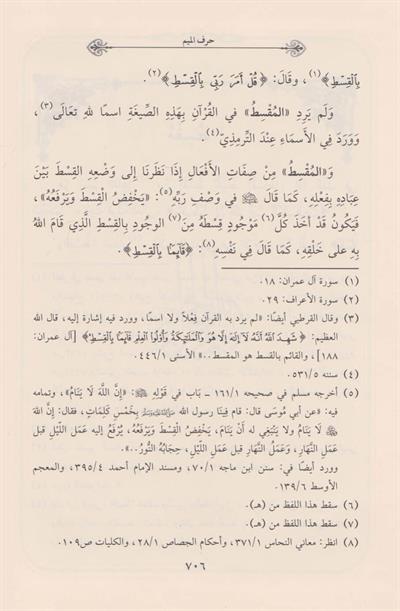 حرف الميم
بِالْقِسْطِ﴾(١)، وقَالَ: ﴿قُلْ أَمَرَ رَبِّي بِالْقِسْطِ﴾(٢).
وَلَم يَرِدِ «المُقْسِطُ» في القُرْآنِ بِهَذِهِ الصِّيغَةِ اسمًا للهِ تعَالَى(٣)،
وَوَرَدَ فِي الأَسمَاءِ عِنْدَ التِّرمِذِيّ(٤).
وَ«المُقْسِطُ» مِنْ صِفَاتِ الأَفْعَالِ إِذَا نَظَرنَا إِلى وَضْعِهِ القِسْطَ بَيْنَ
عِبَادِهِ بِفِعْلِهِ، كَمَا قَالَ ﷺ فِي وَصْفِ رَبِّهِ(٥): «يَخْفِضُ الْقِسْطَ وَيَرْفَعُهُ»،
فَيَكُونُ قَدْ أَخَذَ كُلَّ(٦) مَوْجُودٍ قِسْطَهُ مِنَ(٧) الوجُودِ بِالقِسْطِ الَّذِي قَامَ اللهُ
بِهِ على خَلْقِهِ، كَمَا قَالَ فِي نَفْسِهِ(٨): ﴿قَآئِمًۢا بِالْقِسْطِ﴾.
(١) سورة آل عمران: ١٨.
(٢) سورة الأعراف: ٢٩.
(٣) وقال القرطبي أيضًا: «لم يرد به القرآن فِعْلاً ولا اسما، وورد فيه إشارة إليه، قال الله
العظيم: ﴿شَهِدَ اللَّهُ أَنَّهُ لَآ إِلَٰهَ إِلَّا هُوَ وَالْمَلَٰٓئِكَةُ وَأُو۟لُوا۟ الْعِلْمِ قَآئِمًۢا بِالْقِسْطِ﴾ [آل عمران:
١٨٨]، والقائم بالقسط هو المقسط..» الأسنى ٤٤٦/١.
(٤) سننه ٥٣١/٥.
(٥) أخرجه مسلم في صحيحه ١٦١/١ - بَاب في قَوْلِهِ ﷺ: «إِنَّ اللَّهَ لَا يَنَامُ»، وتمامه
فيه: «عن أبي مُوسَى قال: قام فينا رسول الله ﷺ بِخَمْسِ كَلِمَاتٍ، فقال: إنَّ اللهَ
لَا يَنَامُ ولا يَنبَغي له أَنْ يَنَامَ، يَخْفِضُ الْقِسْطَ وَيَرْفَعُهُ، يُرْفَعُ إليه عَمَلُ اللَّيْلِ قبل
عَمَلِ النَّهَارِ، وَعَمَلُ النَّهَارِ قبل عَمَلِ اللَّيلِ، حِجَابُهُ النُّورُ..».
وورد أيضًا في: سنن ابن ماجه ٧٠/١، ومسند الإمام أحمد ٣٩٥/٤، والمعجم
الأوسط ١٣٩/٦.
(٦) سقط هذا اللفظ من (هـ).
(٧) سقط هذا اللفظ من (هـ).
(٨) انظر: معاني النحاس ٣٧١/١، وأحكام الجصاص ٢٨/١، والكليات ص١٠٩.
٧٠٦